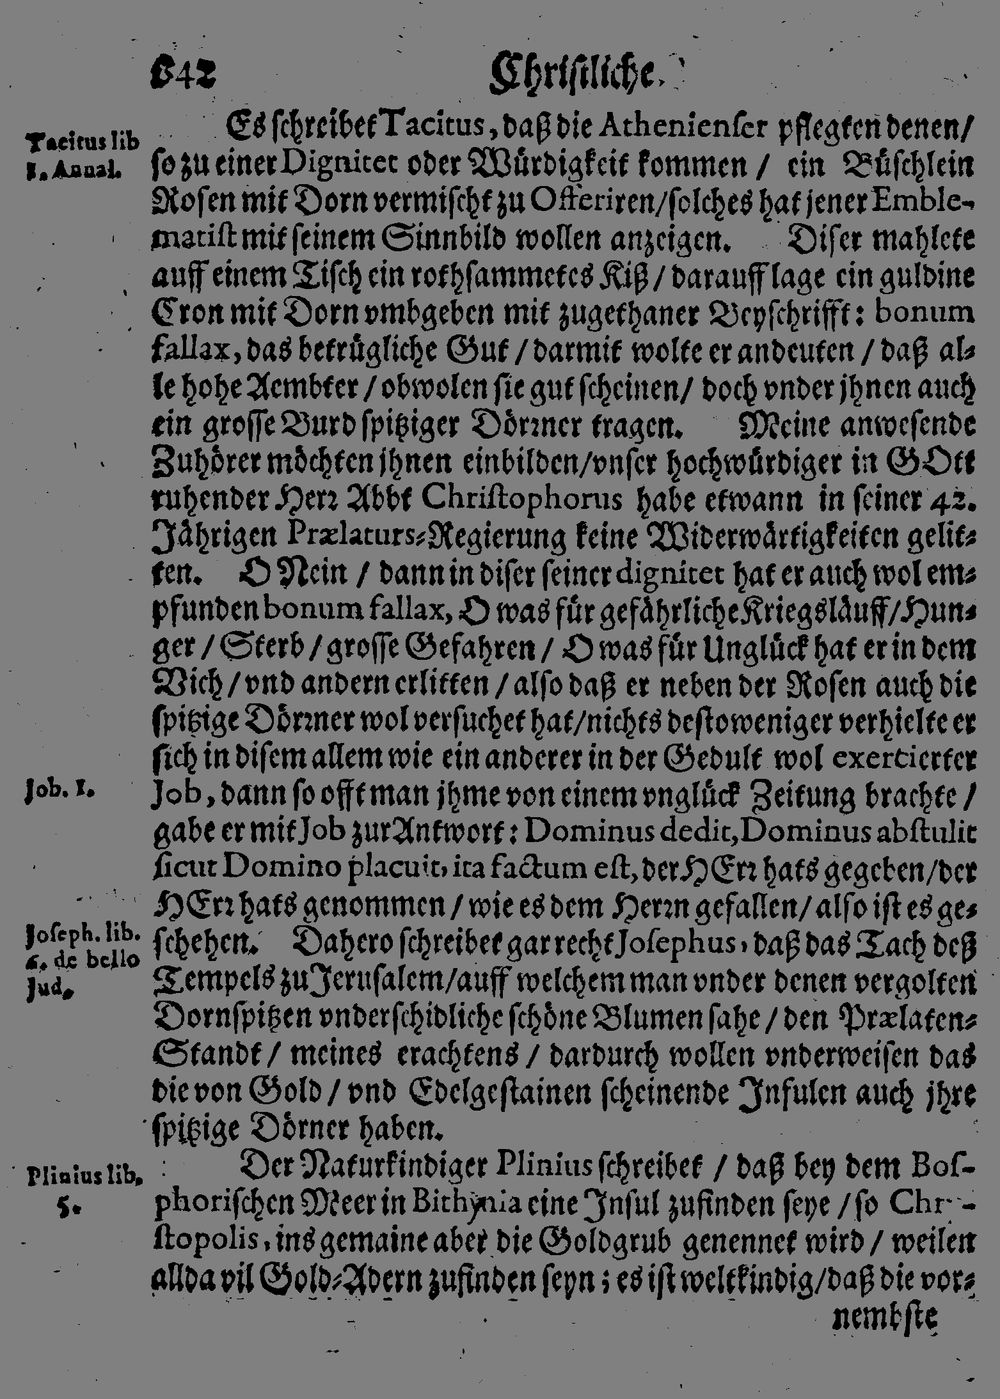 642 Christliche
Es schreibet Tacitus, daß die Athenienser pflegten denen/
Tacitus lib
1. Annal.
so zu einer Dignitet oder Würdigkeit kommen / ein Büschlein
Rosen mit Dorn vermischt zu Offeriren/solches hat jener Emble-
matist mit seinem Sinnbild wollen anzeigen. Diser mahlete
auff einem Tisch ein rothsammetes Kiß / darauff lage ein guldine
Cron mit Dorn vmbgeben mit zugethaner Beyschrifft: bonum
fallax, das betrügliche Gut / darmit wolte er andeuten / daß al-
le hohe Aembter / obwolen sie gut scheinen/ doch vnder jhnen auch
ein grosse Burd spitziger Dörrner tragen. Meine anwesende
Zuhörer möchten jhnen einbilden/vnser hochwürdiger in GOtt
ruhender Herr Abbt Christophorus habe etwann in seiner 42.
Jährigen Prælaturs-Regierung keine Widerwärtigkeiten gelit-
ten. O Nein / dann in diser seiner dignitet hat er auch wol em-
pfunden bonum fallax, O was für gefährliche Kriegsläuff/Hun-
ger / Sterb / grosse Gefahren / O was für Unglück hat er in dem
Vich / vnd andern erlitten / also daß er neben der Rosen auch die
spitzige Dörrner wol versuchet hat/nichts destoweniger verhielte er
sich in disem allem wie ein anderer in der Gedult wol exercierter
Job. 1.
Job, dann so offt man jhme von einem vnglück Zeitung brachte /
gabe er mit Job zur Antwort: Dominus dedit, Dominus abstulit
sicut Domino placuit, ita factum est, der HErr hats gegeben/der
HErr hats genommen / wie es dem Herrn gefallen/ also ist es ge-
Joseph. lib.
6. de bello
Jud.
schehen. Dahero schreibet gar recht Josephus, daß das Tach deß
Tempels zu Jerusalem/auff welchem man vnder denen vergolten
Dornspitzen vnderschidliche schöne Blumen sahe / den Prælaten-
Standt / meines erachtens / dardurch wollen vnderweisen das
die von Gold / vnd Edelgestainen scheinende Jnfulen auch jhre
spitzige Dörner haben.
Plinius lib.
5.
Der Naturkindiger Plinius schreibet / daß bey dem Bos-
phorischen Meer in Bithynia eine Jnsul zufinden seye / so Chr-
stopolis, ins gemaine aber die Goldgrub genennet wird / weilen
allda vil Gold-Adern zufinden seyn ; es ist weltkindig/daß die vor-
nembste